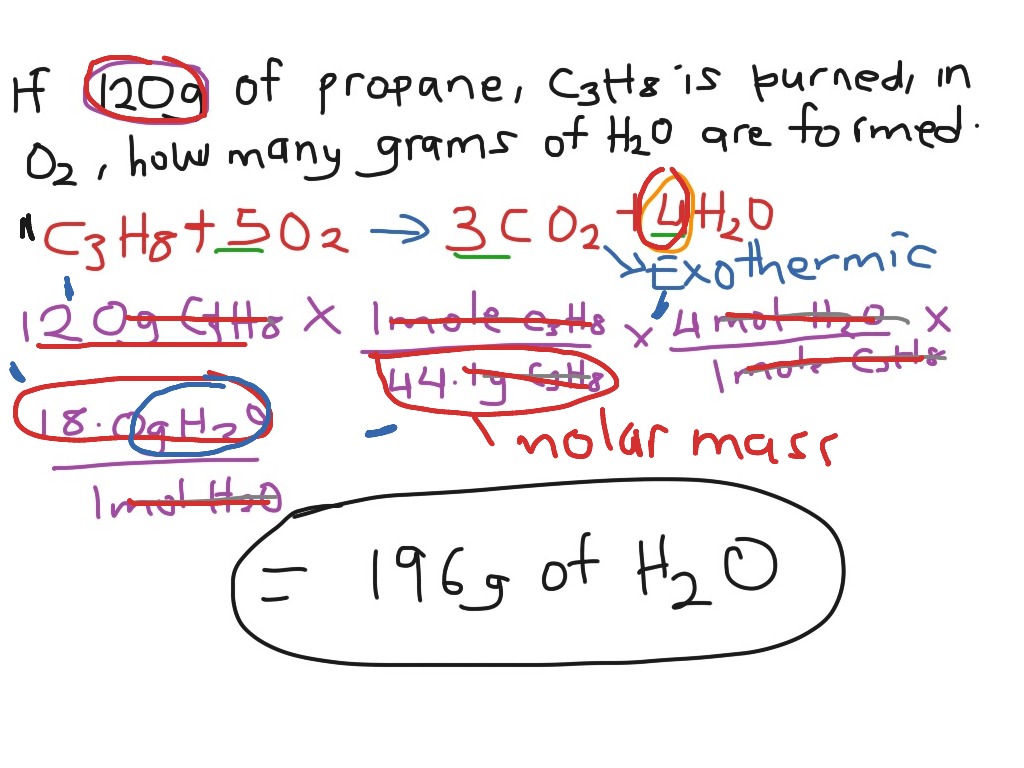 If 120g of propane, C3H8 is burned, in
O2, how many grams of H2O are formed.
C3H8 + 5O2 → 3CO2 + 4H2O
Exothermic
120g C3H8 × 1mole C3H8 × 4 mol H2O ×
44.1g C3H8 1mole C3H8
18.0g H2O
1mol H2O
molar mass
= 196g of H2O